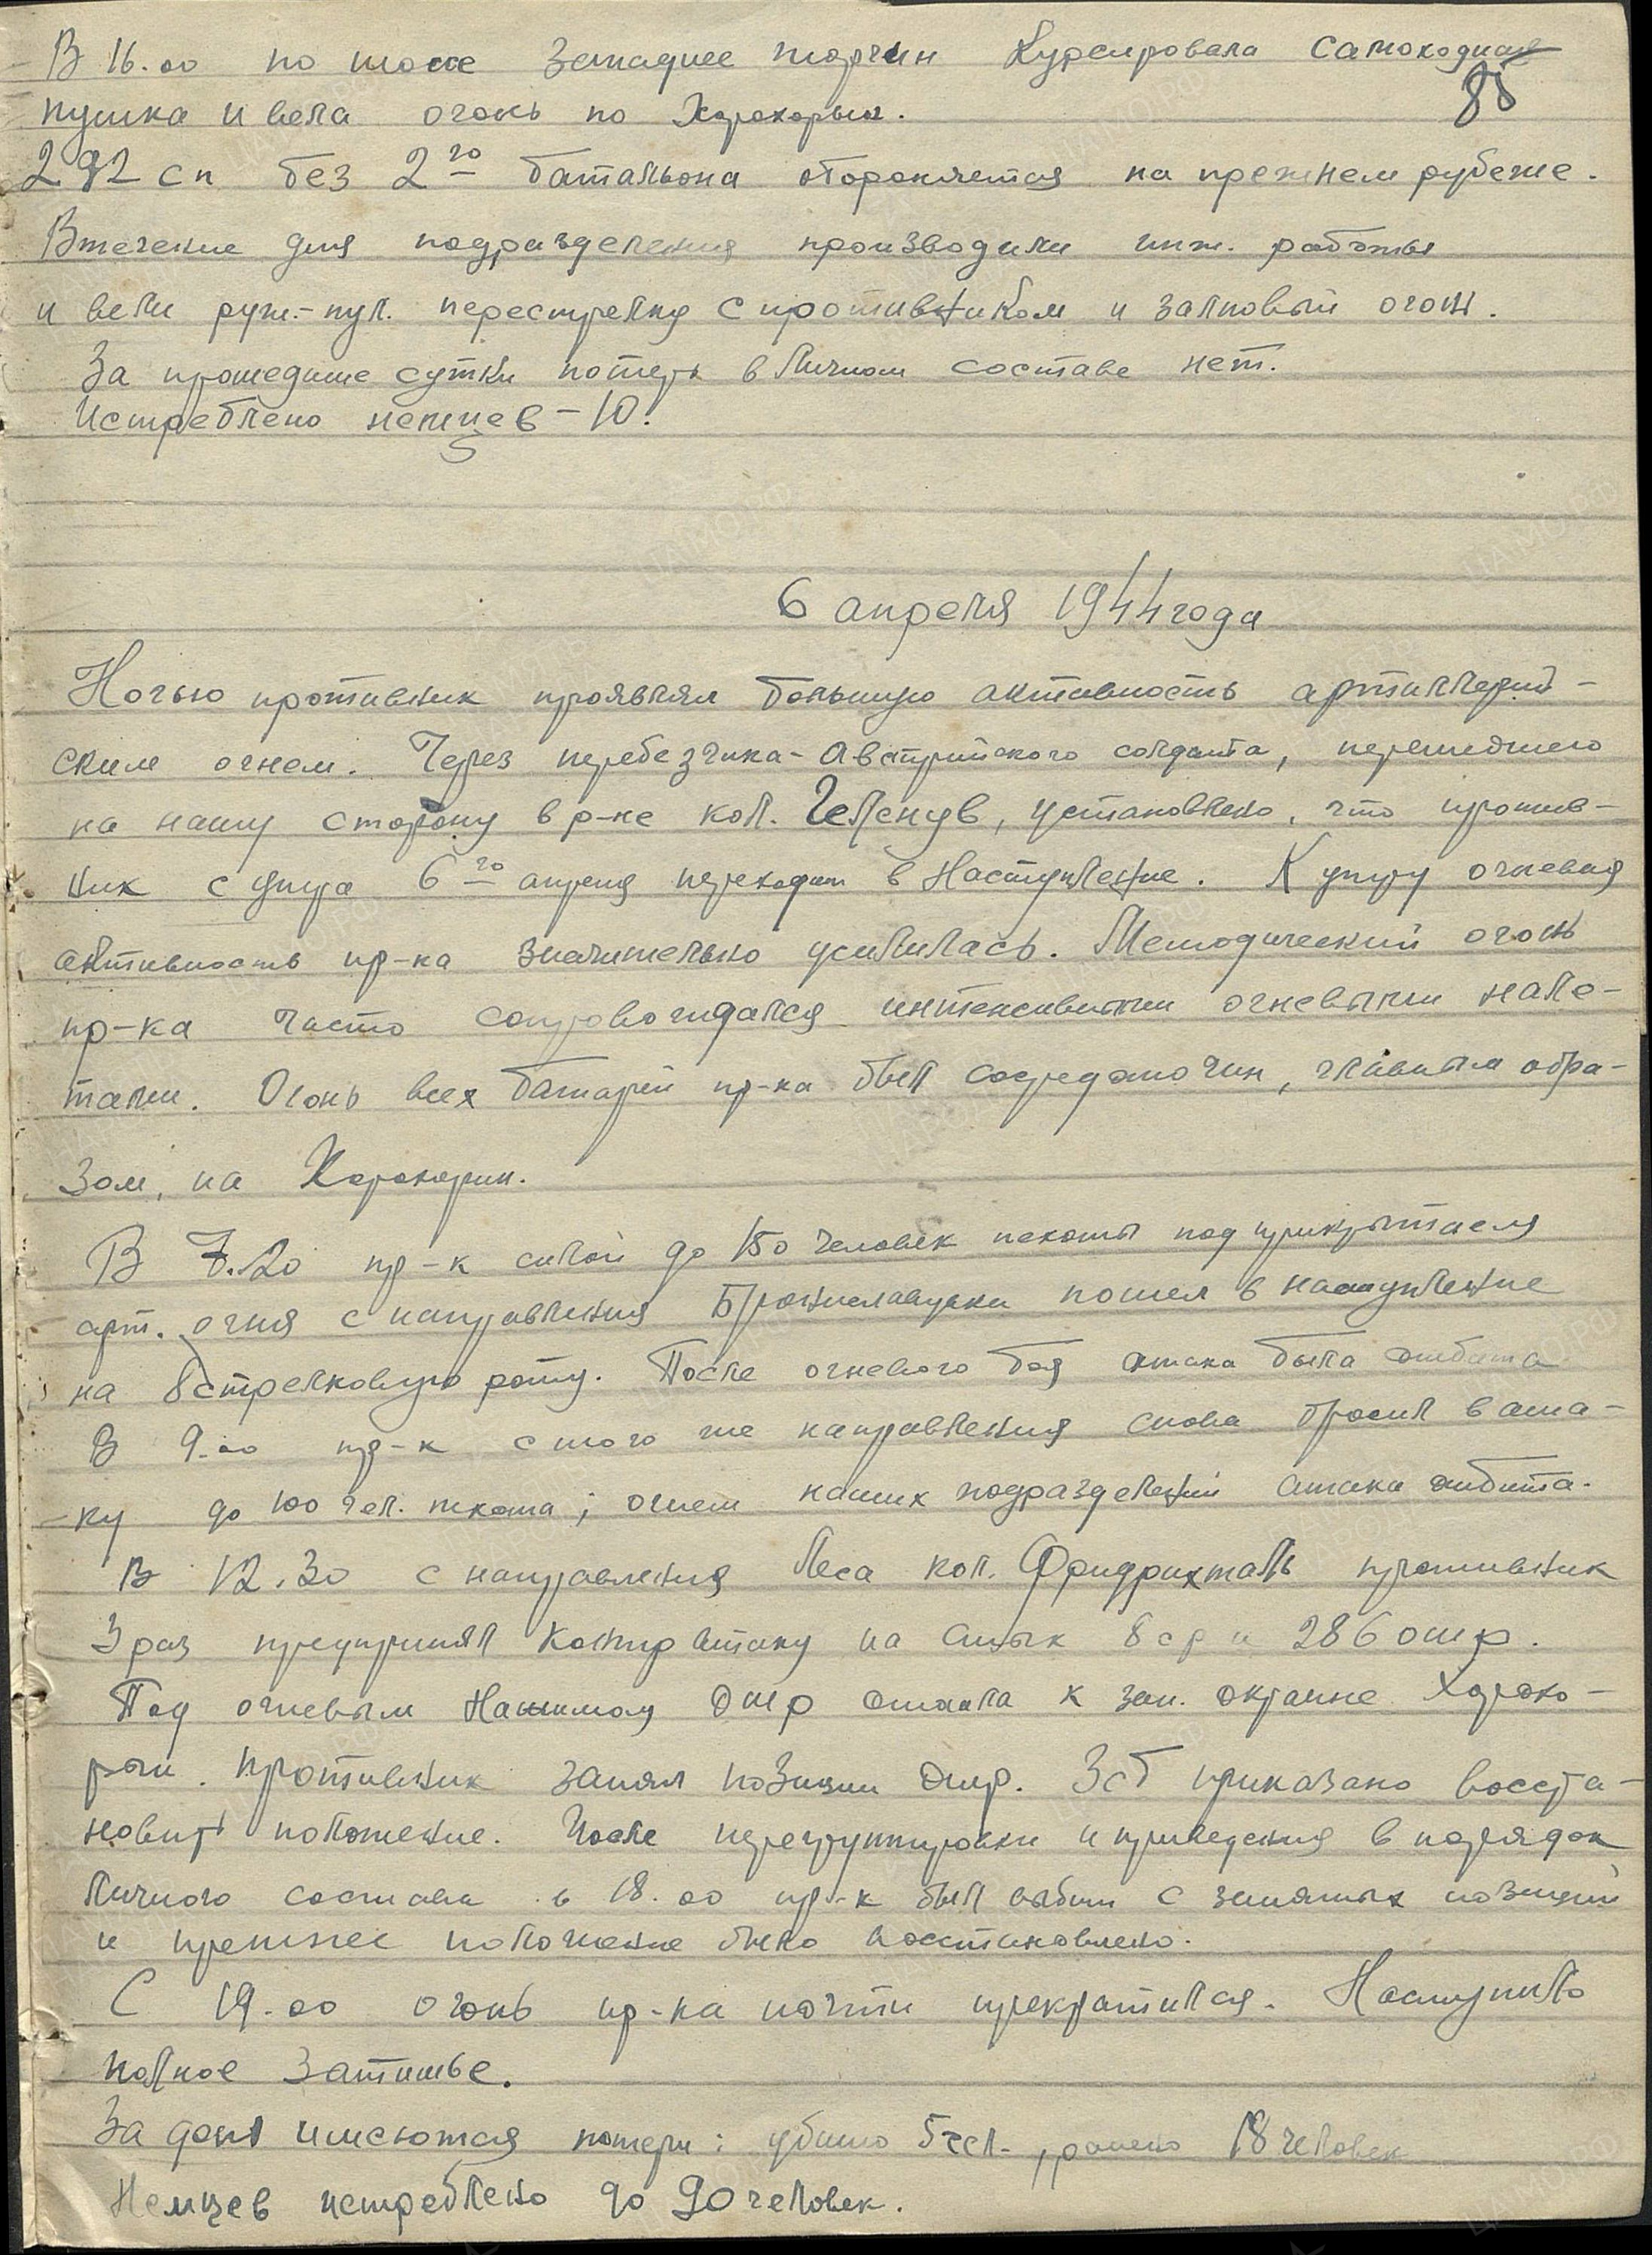 В 16.00 по шоссе западнее Торчин курсировала самоходная
85
пушка и вела огонь по Хорохорын.
292 сп без 2го батальона обороняется на прежнем рубеже.
Втечение дня подразделения производили инж. работы
и вели руж.-пул. перестрелку с противником и залповый огонь.
За прошедшие сутки потерь в личном составе нет.
Истреблено немцев – 10.
6 апреля 1944 года
Ночью противник проявлял большую активность артиллерий-
ским огнем. Через перебезчика - австрийского солдата, перешедшего
на нашу сторону в р-не кол. Геленув, установлено, что против-
ник с утра 6го апреля переходит в наступление. К утру огневая
активность пр-ка значительно усилилась. Методический огонь
пр-ка часто сопровождался интенсивными огневыми нале-
тами. Огонь всех батарей пр-ка был сосредоточин, главным обра-
зом, на Хорохорин.
В 7.20 пр-к силой до 150 человек пехоты под прикрытием
арт. огня с направления Брониславувки пошел в наступление
на 8 стрелковую роту. После огневого боя атака была отбита
В 9.00 пр-к с того же направления снова бросил в ата-
ку до 100 чел. пехоты; огнем наших подразделений атака отбита.
В 12.30 с направления леса кол. Фридрихталь противник
3 раз предпринял контратаку на стык 8 ср и 286 ошр.
Под огневым нажимом ошр отошла к зап. окраине Хорохо-
рын. Противник занял позиции ошр. 3сб приказано восста-
новить положение. После перегруппировки и приведения в порядок
личного состава в 18.00 пр-к был выбит с занятых позиций
и прежнее положение было восстановлено.
С 19.00 огонь пр-ка почти прекратился. Наступило
полное затишье.
За день имеются потери: убито 5 чел., ранено 18 человек
Немцев истреблено до 90 человек.